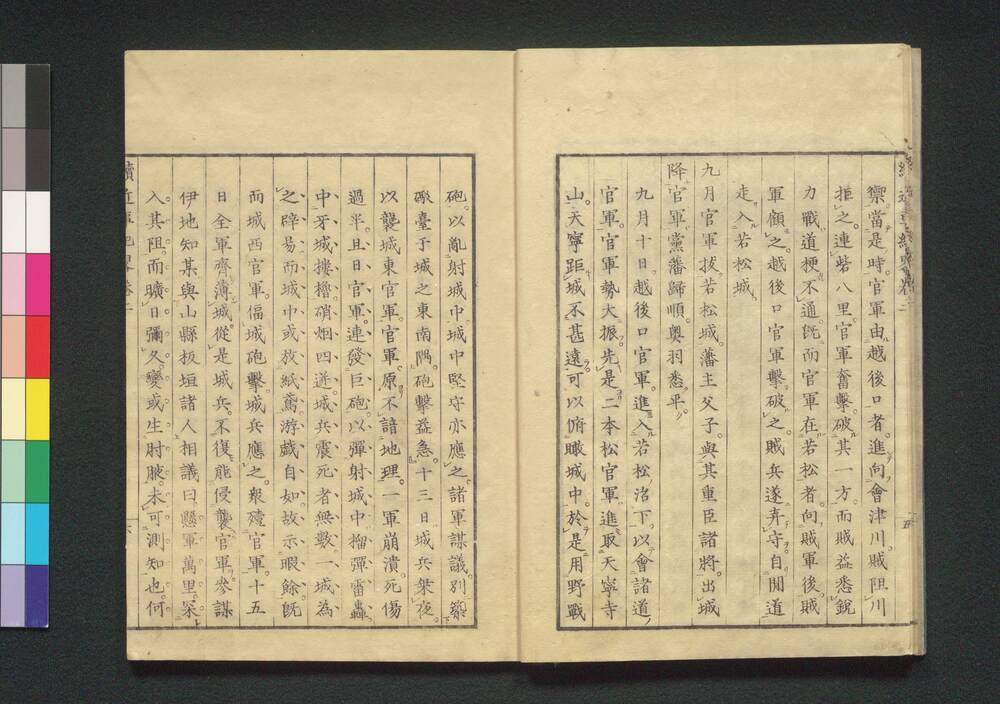 禦當是時官軍由越後口者進向會津川賊阻川
拒之連砦八里官軍奮擊破其一方而賊益悉銳
力戰道梗不通既而官軍在若松者向賊軍後賊
軍顧之越後口官軍擊破之賊兵遂弃守自閒道
走入若松城
九月官軍拔若松城藩主父子與其重臣諸將出城
降官軍黨藩歸順奧羽悉平
九月十日越後口官軍進入若松沼下以會諸道
官軍官軍勢大振先是二本松官軍進取天寧寺
山天寧距城不甚遠可以俯瞰城中於是用野戰
砲以亂射城中城中堅守亦應之諸軍謀議別築
礮臺于城之東南隅砲擊益急十三日城兵槩夜
以襲城東官軍官軍原不諳地理一軍崩潰死傷
過半且日官軍連發巨砲以彈射城中榴彈雷轟
中牙城摟櫓硝烟四迸城兵震死者無數一城為
之辟易而城中或放紙鳶游戲自如故示暇餘既
而城西官軍偪城砲擊城兵應之衆殪官軍十五
日全軍齊薄城從是城兵不復能侵襲官軍參謀
伊地知某與山縣板垣諸人相議曰懸軍萬里深
入其阻而曠日彌久變或生肘腋未可測知也何